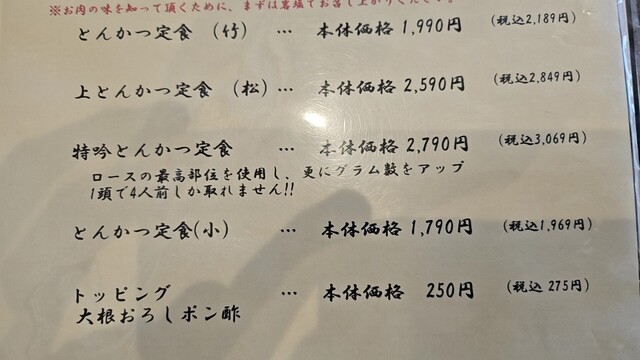 ※お肉の味を知って頂くために、まずは岩塩でお召し上がりください。
とんかつ定食 (竹) … 本体価格 1,990円 (税込2,189円)
上とんかつ定食 (松) … 本体価格 2,590円 (税込2,849円)
特吟とんかつ定食 … 本体価格 2,790円 (税込3,069円)
ロースの最高部位を使用し、更にグラム数をアップ
1頭で4人前しか取れません!!
とんかつ定食(小) … 本体価格 1,790円 (税込1,969円)
トッピング … 本体価格 250円 (税込 275円)
大根おろしポン酢